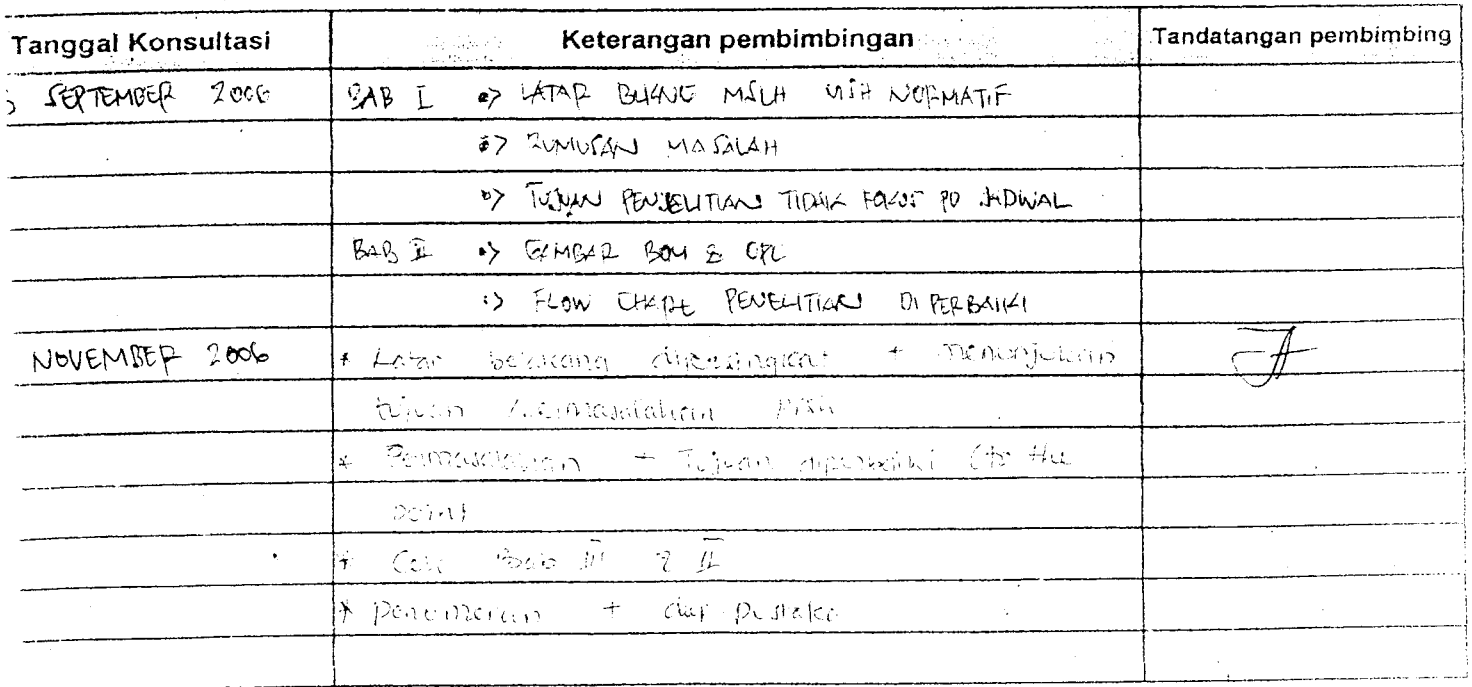 Tanggal Konsultasi Keterangan pembimbingan Tandatangan pembimbing
SEPTEMBER 2006 BAB I => LATAR BLKNG MSLH MSH NORMATIF
=> RUMUSAN MASALAH
=> TUJUAN PENELITIAN TIDAK FOKUS PD JADWAL
BAB II => GAMBAR BOM & OPC
=> FLOW CHART PENELITIAN DIPERBAIKI
NOVEMBER 2006 * Latar belakang dipersingkat + menunjukan
tujuan permasalahan
* Permasalahan + Tujuan diperbaiki (to the
point
* Cek Bab III & II
* penomoran + daf pustaka